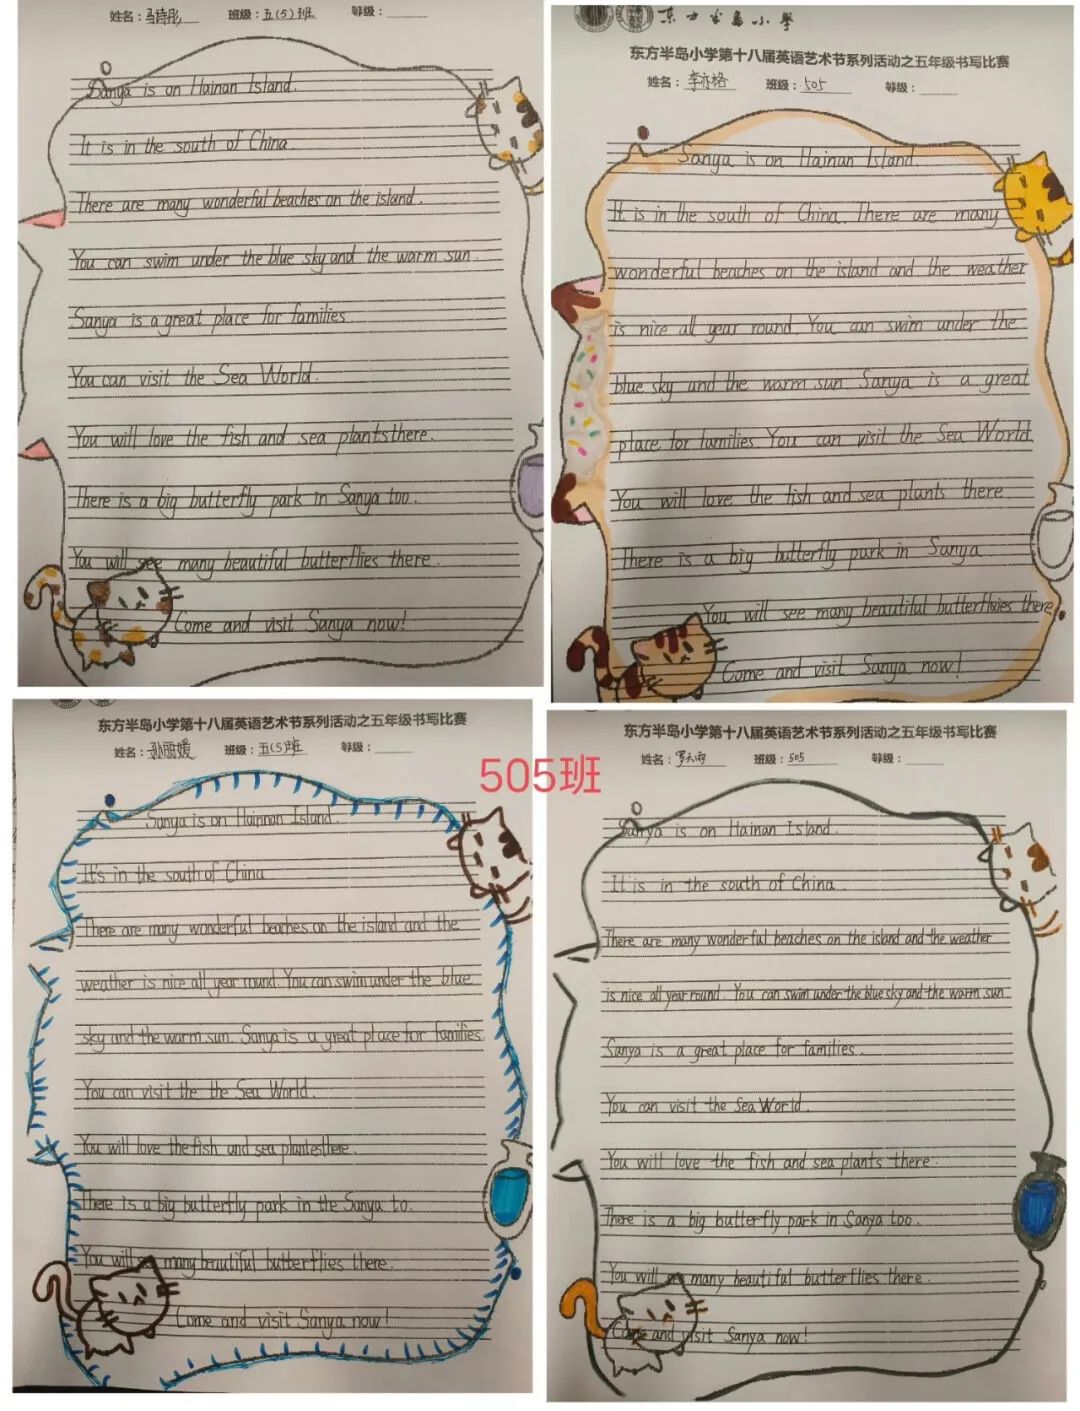 姓名：马诗彤 班级：五(5)班 等级：
Sanya is on Hainan Island.
It is in the south of China.
There are many wonderful beaches on the island.
You can swim under the blue sky and the warm sun.
Sanya is a great place for families.
You can visit the Sea World.
You will love the fish and sea plants there.
There is a big butterfly park in Sanya too.
You will see many beautiful butterflies there.
Come and visit Sanya now!
东方半岛小学
东方半岛小学第十八届英语艺术节系列活动之五年级书写比赛
姓名：李亦格 班级：505 等级：
Sanya is on Hainan Island.
It is in the south of China. There are many
wonderful beaches on the island and the weather
is nice all year round. You can swim under the
blue sky and the warm sun Sanya is a great
place for families You can visit the Sea World.
You will love the fish and sea plants there
There is a big butterfly park in Sanya
You will see many beautiful there
Come and visit Sanya now!
东方半岛小学第十八届英语艺术节系列活动之五年级书写比赛
姓名：孙丽媛 班级：五(5)班 等级：
505班
Sanya is on Hainnan Island.
It's in the south of China
There are many wonderful beaches on the island and the
weather is nice all year round. You can swim under the blue
sky and the warm sun. Sanya is a great place for families.
You can visit the the Sea World.
You will love the fish and sea there.
There is a big butterfly park in the Sanya to.
You will see many beautiful butterflies there.
Come and visit Sanya now!
东方半岛小学第十八届英语艺术节系列活动之五年级书写比赛
姓名：罗天雨 班级：505 等级：
Sanya is on Hainan Island.
It is in the south of China.
There are many wonderful beaches on the island and the weather
is nice all year round. You can swim under the blue sky and the warm sun
Sanya is a great place for families.
You can visit the Sea World.
You will love the fish and sea plants there.
There is a big butterfly park in Sanya too.
You will see many beautiful butterflies there.
Come and visit Sanya now!